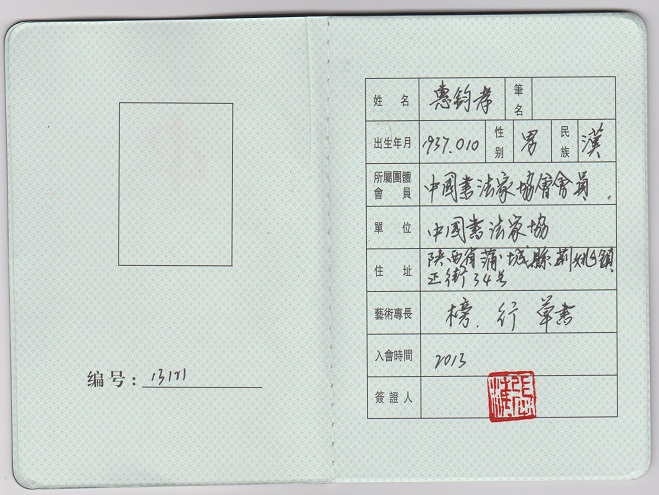 编号：13121
姓名 惠鈞孝 筆名
出生年月 1937.010 性别 男 民族 漢
所屬團體會員 中國書法家協會會員
單位 中國書法家協
住址 陕西省蒲城縣荊姚鎮
正街34号
藝術專長 榜.行草書
入會時間 2013
簽證人